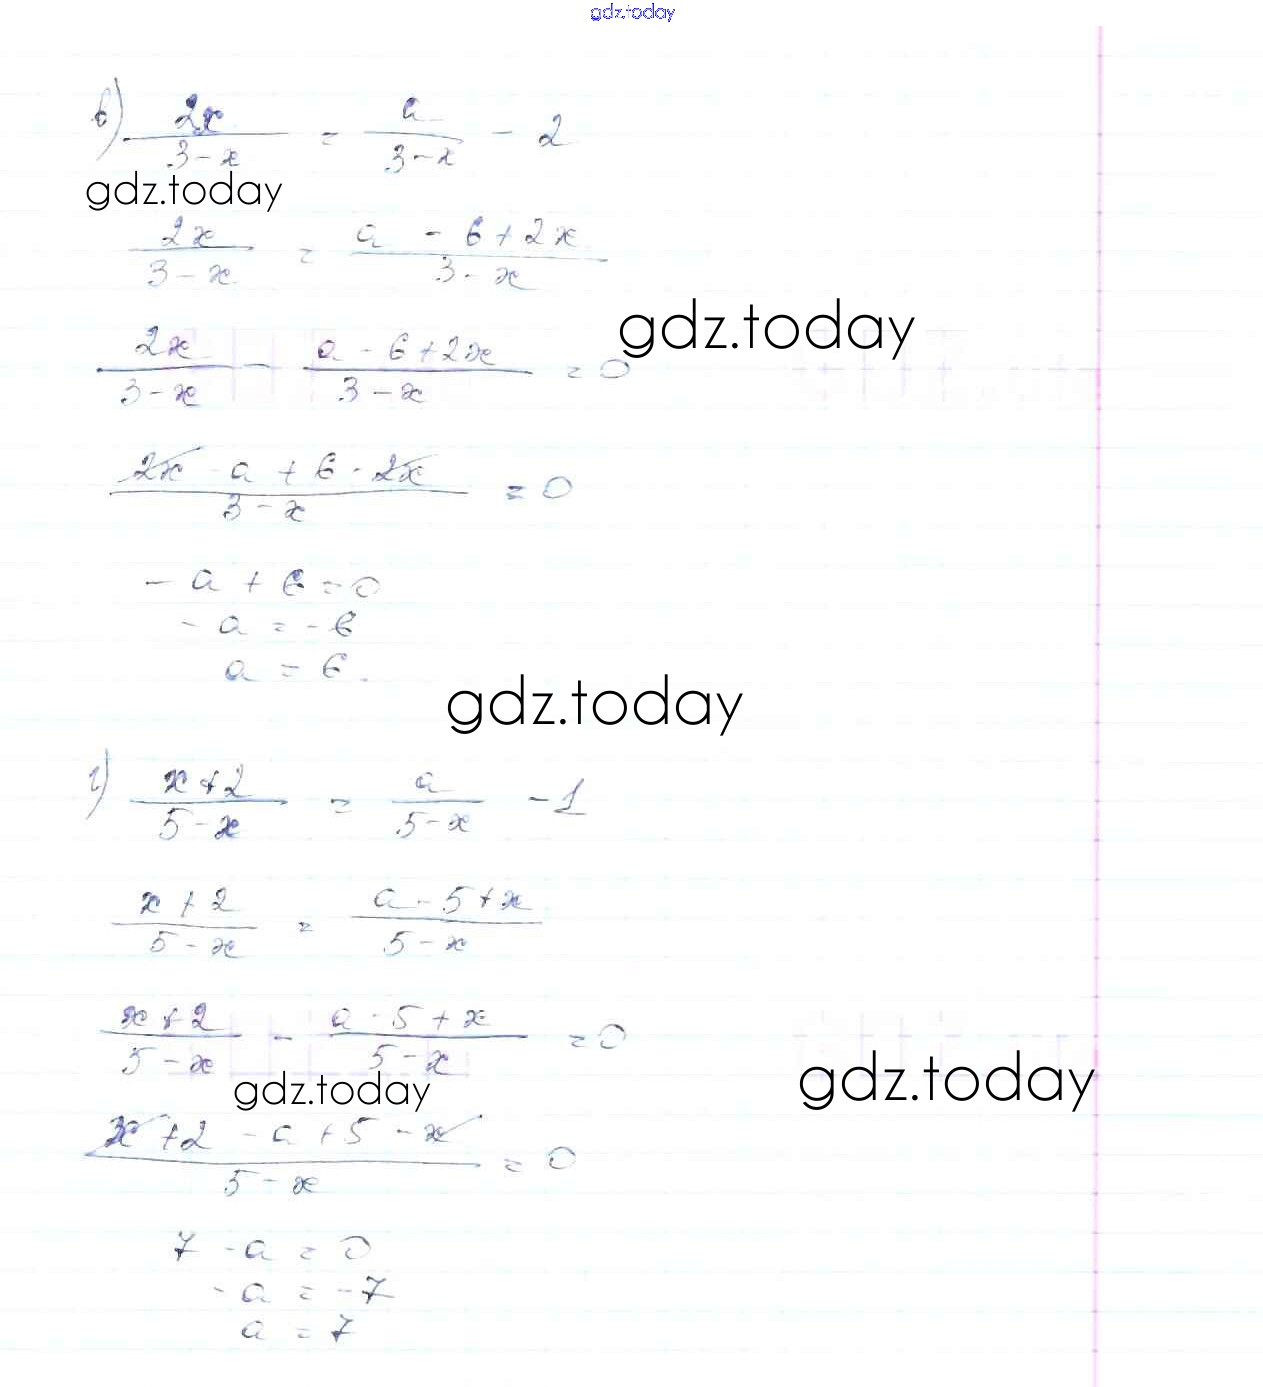 gdz.today
в) 2x/(3-x) = a/(3-x) - 2
gdz.today
2x/(3-x) = (a - 6 + 2x)/(3-x)
gdz.today
2x/(3-x) - (a - 6 + 2x)/(3-x) = 0
(2x - a + 6 - 2x)/(3-x) = 0
- a + 6 = 0
- a = - 6
a = 6.
gdz.today
г) (x+2)/(5-x) = a/(5-x) - 1
(x+2)/(5-x) = (a - 5 + x)/(5-x)
(x+2)/(5-x) - (a - 5 + x)/(5-x) = 0
gdz.today
gdz.today
(x + 2 - a + 5 - x)/(5-x) = 0
7 - a = 0
- a = - 7
a = 7